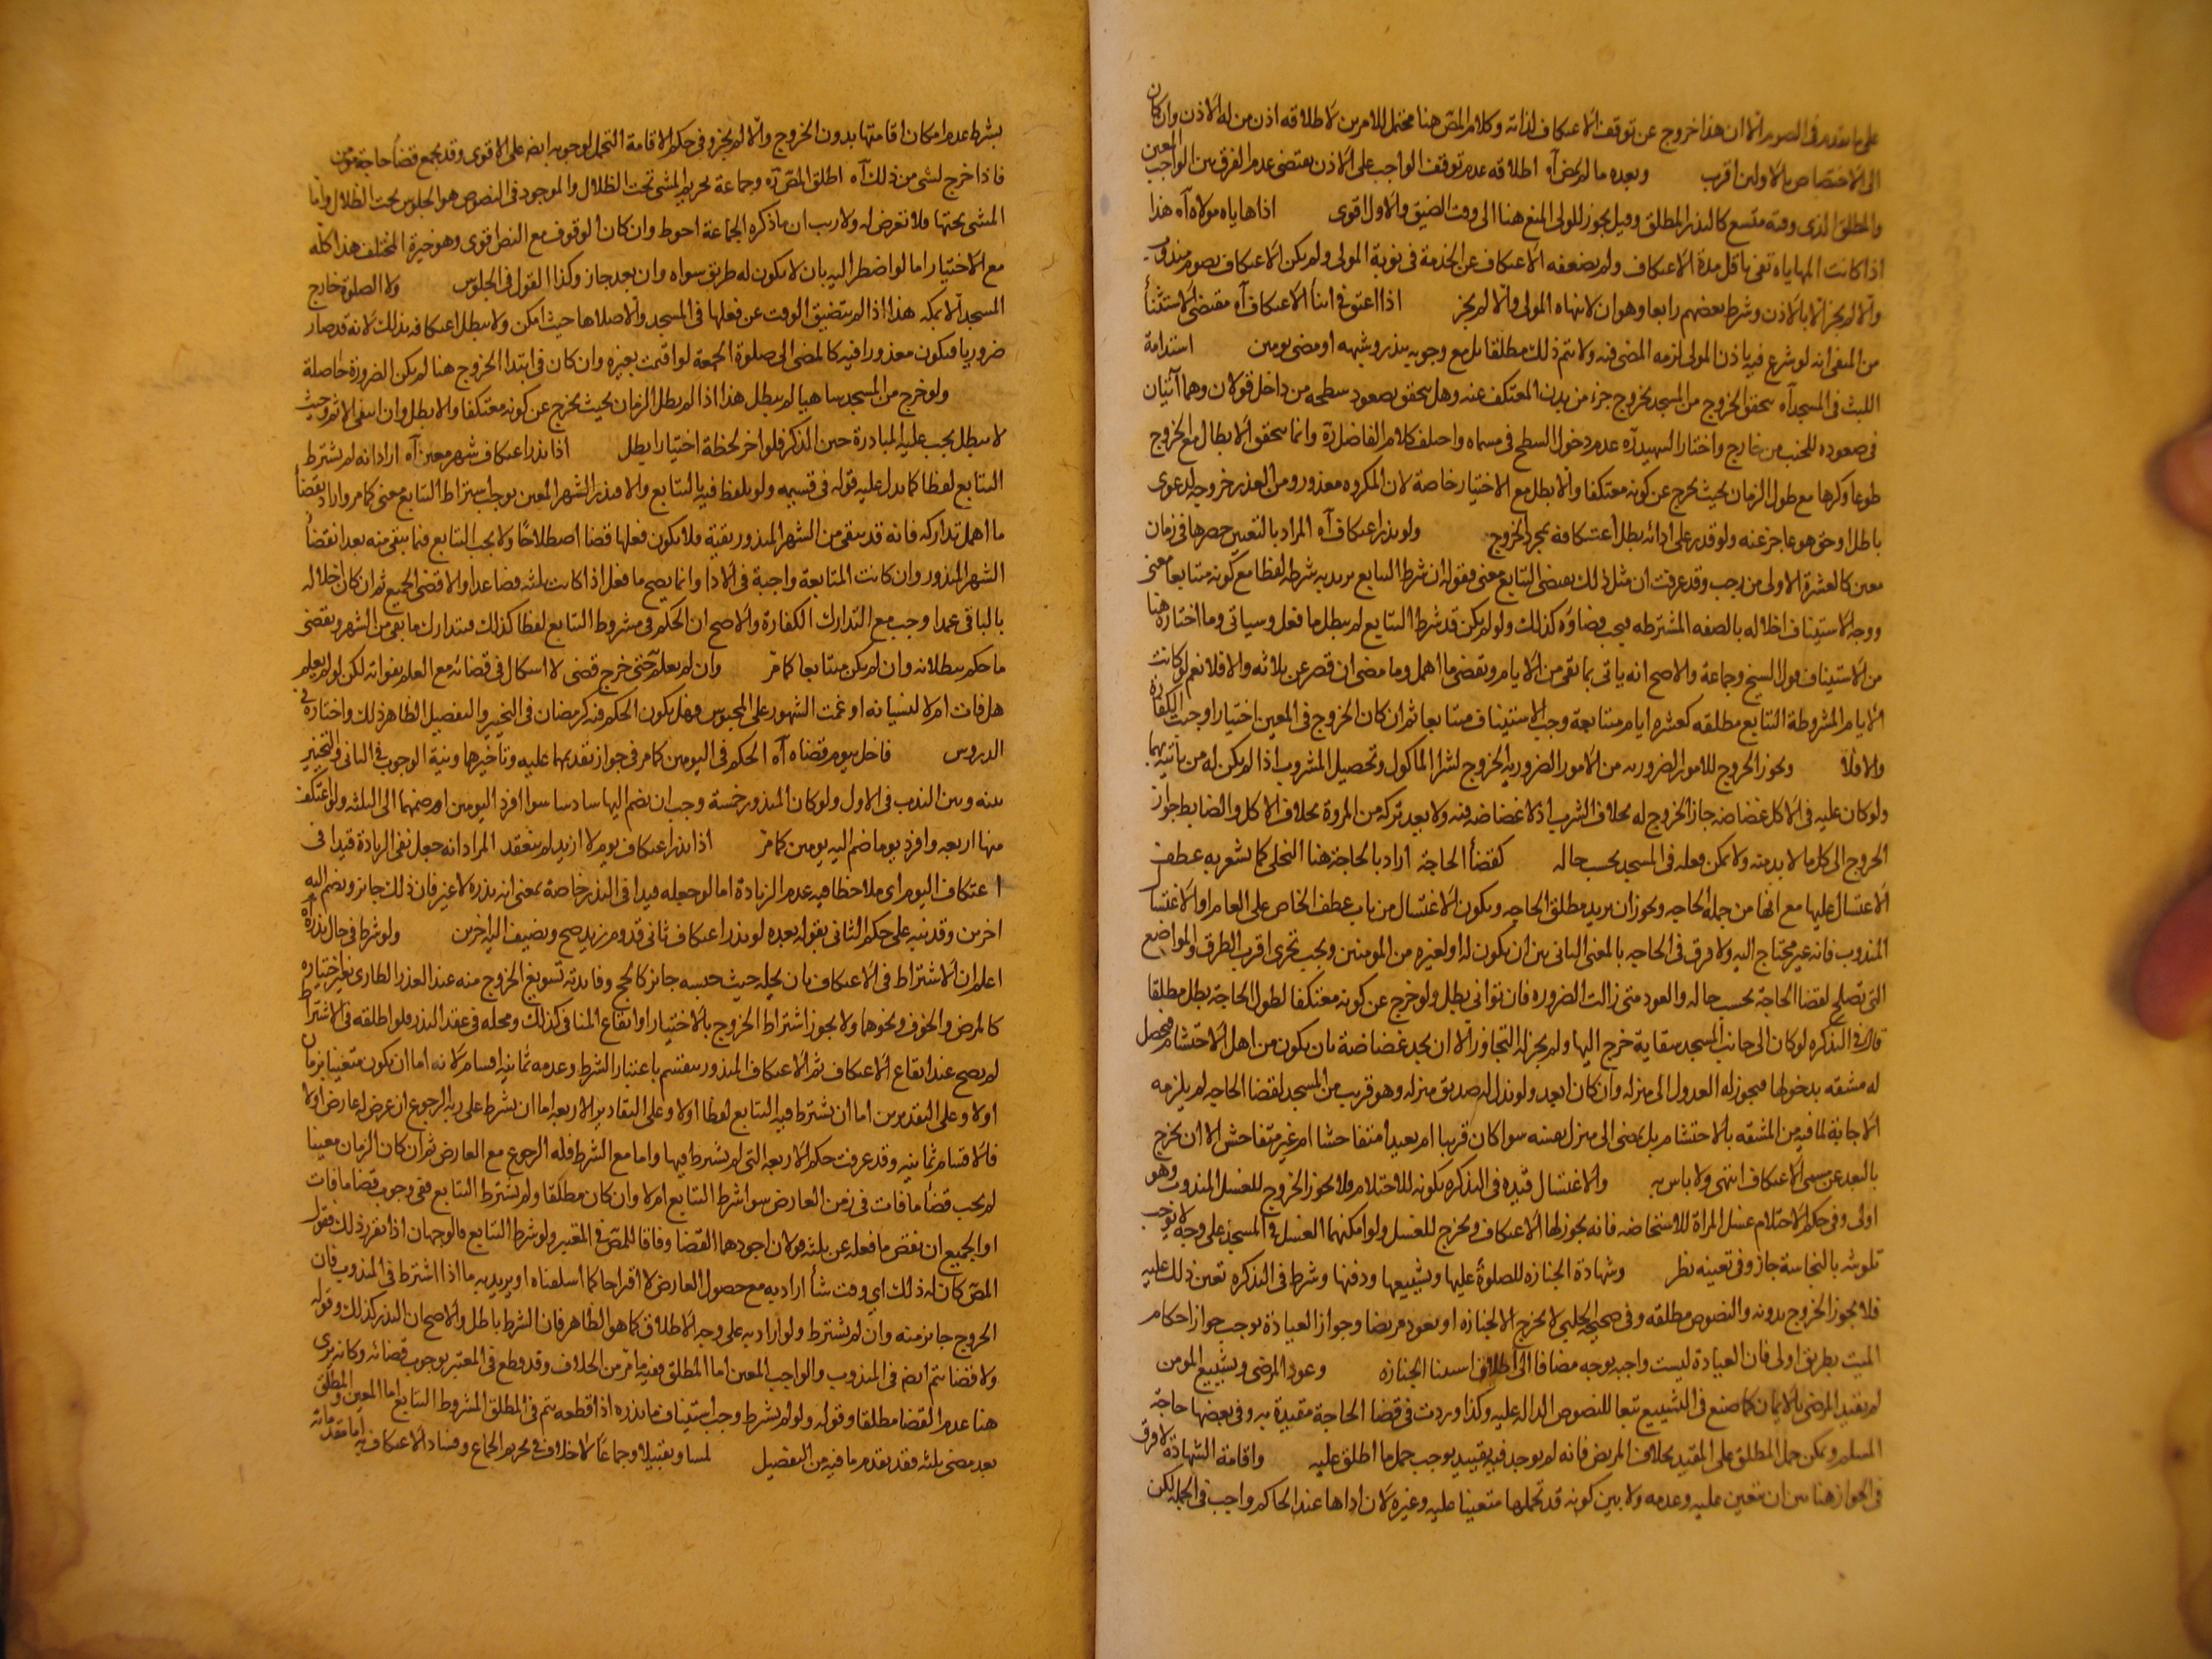 على ما تقدم في الصوم الا ان هذا خروج عن توقف الاعتكاف لذاته وكلام المص هنا محتمل للامرين لاطلاقه اذن من له الاذن وان كان
الى الاختصاص بالاولين اقرب وبعده ما لم يمض آه اطلاقه عدم توقف الواجب على الاذن يقتضى عدم الفرق بين الواجب المعين
والمطلق الذى وقته متسع كالنذر المطلق وقيل يجوز للمولى المنع هنا الى وقت الضيق والاول اقوى اذا هاياه مولاه آه هذا
اذا كانت المهاياه تفى باقل مدة الاعتكاف ولم يضعفه الاعتكاف عن الخدمة في نوبة المولى ولم يكن الاعتكاف بصوم مندوب
والا لم يجز الا بالاذن وشرط بعضهم رابعا وهو ان لا ينهاه المولى والا لم يجز اذا اعتق في اثنا الاعتكاف آه مقتضى الاستثنأ
من المنفى انه لو شرع فيه باذن المولى لزمه المضى فيه ولا يتم ذلك مطلقا بل مع وجوبه بنذر وشبهه او مضى يومين استدامة
اللبث في المسجد آه يتحقق الخروج من المسجد بخروج جزء من بدن المعتكف عنه وهل يتحقق بصعود سطحه من داخل قولان وهما آتيان
في صعوده للجنب من خارج واختار الشهيد ره عدم دخول السطح في مسماه واختلف كلام الفاضل ره وانما يتحقق الابطال مع الخروج
طوعا وكرها مع طول الزمان بحيث يخرج عن كونه معتكفا والا بطل مع الاختيار خاصة لان المكروه معذور ومن العذر خروجه لدعوى
باطل او حق هو عاجز عنه ولو قدر على ادائه بطل اعتكافه بمجرد الخروج ولو نذر اعتكاف آه المراد بالتعيين حصرها في زمان
معين كالعشرة الاولى من رجب وقد عرفت ان مثل ذلك يقتضى التتابع معنى فقوله ان شرط التتابع يريد به شرطه لفظا مع كونه متتابعا معنى
ووجه الاستيناف اخلاله بالصفه المشترطه فيجب قضاؤه كذلك ولو لم يكن قد شرط التتابع لم يبطل ما فعل وسياتى وما اختاره هنا
من الاستيناف قول الشيخ وجماعة والاصح انه ياتى بما بقى من الايام ويقضى ما اهمل وما مضى ان قصر عن ثلاثه والا فلا نعم لو كانت
الايام المشروطة التتابع مطلقه كعشره ايام متتابعة وجب الاستيناف متتابعا ثم ان كان الخروج في المعين اختيارا وجبت الكفارة
والا فلا ويجوز الخروج للامور الضروريه من الامور الضروريه الخروج لشرا الماكول وتحصيل المشروب اذا لم يكن له من ياتيه بهما
ولو كان عليه في الاكل غضاضه جاز الخروج له بخلاف الشرب اذ لا غضاضه فيه ولا يعد تركه من المروة بخلاف الاكل والضابط جواز
الخروج الى كل ما لا بد منه ولا يمكن فعله في المسجد بحسب حاله كقضأ الحاجة اراد بالحاجة هنا التخلى كما يشعر به عطف
الاغتسال عليها مع انها من جملة الحاجه ويجوز ان يريد مطلق الحاجه ويكون الاغتسال من باب عطف الخاص على العام او الاغتسا
المندوب فانه غير محتاج اليه ولا فرق في الحاجه بالمعنى الثانى بين ان يكون له او لغيره من المومنين ويجب تحرى اقرب الطرق والمواضع
التى تصلح لقضا الحاجة بحسب حاله والعود متى زالت الضروره فان توانى بطل ولو خرج عن كونه معتكفا لطول الحاجة بطل مطلقا
قال في التذكره لو كان الى جانب المسجد سقاية خرج اليها ولم يجز له التجاوز الا ان يجد غضاضة بان يكون من اهل الاحتشام فيحصل
له مشقه بدخولها فيجوز له العدول الى منزله وان كان ابعد ولو بذل له صديق منزله وهو قريب من المسجد لقضا الحاجه لم يلزمه
الاجابة لما فيه من المشقه بالاحتشام بل يمضى الى منزل نفسه سوا كان قريبا ام بعيدا متفاحشا ام غير متفاحش الا ان يخرج
بالبعد عن مسمى الاعتكاف انتهى ولا باس به والاغتسال قيده في التذكره بكونه للاحتلام فلا يجوز الخروج للغسل المندوب وهو
اولى وفي حكم الاحتلام غسل المراة للاستحاضه فانه يجوز لها الاعتكاف ويخرج للغسل ولو امكنهما الغسل في المسجد على وجه لا يوجب
تلوثه بالنجاسة جاز وفي تعينه نظر وشهادة الجنازه للصلوة عليها وتشييعها ودفنها وشرط في التذكره تعين ذلك عليه
فلا يجوز الخروج بدونه والنصوص مطلقه وفي صحيحة الحلبى لا يخرج الا لجنازه او يعود مريضا وجواز العيادة يوجب جواز احكام
الميت بطريق اولى فان العيادة ليست واجبه بوجه مضافا الى اطلاق استثنا الجنازه وعود المرضى وتشييع المومن
لم يقيد المرضى بالايمان كما صنع في التشييع تبعا للنصوص الداله عليه وكذا وردت في قضا الحاجة مقيدة به وفي بعضها حاجة
المسلم ويمكن حمل المطلق على المقيد بخلاف المريض فانه لم يوجد فيه تقييد يوجب حمل ما اطلق عليه واقامة الشهادة لا فرق
في الجواز هنا بين ان يتعين عليه وعدمه ولا بين كونه قد تحملها متعينا عليه وغيره لان اداها عند الحاكم واجب في الجمله لكن
بشرط عدم امكان اقامتها بدون الخروج والا لم يجز وفي حكم الاقامة التحمل لوجوبه ايضا على الاقوى وقد يجمع قضأ حاجة مؤمن
فاذا خرج لشى من ذلك آه اطلق المص ره وجماعة تحريم المشى تحت الظلال والموجود في النصوص هو الجلوس تحت الظلال واما
المشى تحتها فلا تعرض له ولا ريب ان ما ذكره الجماعة احوط وان كان الوقوف مع النص اقوى وهو خيرة المختلف هذا كله
مع الاختيار اما لو اضطر اليه بان لا يكون له طريق سواه وان بعد جاز وكذا القول في الجلوس ولا الصلوة خارج
المسجد الا بمكه هذا اذا لم يتضيق الوقت عن فعلها في المسجد والا صلاها حيث امكن ولا يبطل اعتكافه بذلك لانه قد صار
ضروريا فيكون معذورا فيه كالمضى الى صلوة الجمعة لو اقيمت بغيره وان كان في ابتدا الخروج هنا لم يكن الضرورة حاصلة
ولو خرج من المسجد ساهيا لم يبطل هذا اذا لم يطل الزمان بحيث يخرج عن كونه معتكفا والا بطل وان انتفى الاثم وحيث
لا يبطل يجب عليه المبادرة حين الذكر فلو اخر لحظة اختيارا بطل اذا نذر اعتكاف شهر معين آه اراد انه لم يشترط
التتابع لفظا كما يدل عليه قوله في قسيمه ولو تلفظ فيه بالتتابع والا فنذر الشهر المعين يوجب اشتراط التتابع معنى كما مر واراد بقضأ
ما اهمل تداركه فانه قد يبقى من الشهر المنذور بقية فلا يكون فعلها قضا اصطلاحا ولا يجب التتابع فيما يبقى منه بعد انقضأ
الشهر المنذور وان كانت المتابعة واجبة في الادا وانما يصح ما فعل اذا كانت ثلثه فصاعدا والا قضى الجميع ثم ان كان اخلاله
بالباقى عمدا وجب مع التدارك الكفارة والاصح ان الحكم في مشروط التتابع لفظا كذلك فيتدارك ما بقى من الشهر ويقضى
ما حكم ببطلانه وان لم يكن متتابعا كما مر وان لم يعلم حتى خرج قضى لا اشكال في قضائه مع العلم بفواته لكن لو لم يعلم
هل فات ام لا لنسيانه او غمت الشهور على المحبوس فهل يكون الحكم فيه كرمضان في التخيير والتفصيل الظاهر ذلك واختاره في
الدروس فاخل بيوم قضاه آه الحكم في اليومين كما مر في جواز تقديمهما عليه وتاخيرها ونية الوجوب في الثانى والتخيير
بينه وبين الندب في الاول ولو كان المنذور خمسة وجب ان يضم اليها سادسا سوا افرد اليومين ام ضمهما الى الثلثه ولو اعتكف
منها اربعه وافرد يوما ضم اليه يومين كما مر اذا نذر اعتكاف يوم لا ازيد لم ينعقد المراد انه جعل نفى الزيادة قيدا في
اعتكاف اليوم اى ملاحظا فيه عدم الزيادة اما لو جعله قيدا في النذر خاصة بمعنى انه نذره لا غير فان ذلك جائز ويضم اليه
اخرين وقد نبه على حكم الثانى بقوله بعده لو نذر اعتكاف ثانى قدوم زيد صح ويضيف اليه اخرين ولو شرط في حال نذره آه
اعلم ان الاشتراط في الاعتكاف بان يحله حيث حبسه جائز كالحج وفائدته تسويغ الخروج منه عند العذر الطارى بغير اختياره
كالمرض والخوف ونحوهما ولا يجوز اشتراط الخروج بالاختيار او ايقاع المنافى كذلك ومحله في عقد النذر فلو اطلقه في الاشتراط
لم يصح عند ايقاع الاعتكاف ثم الاعتكاف المنذور ينقسم باعتبار الشرط وعدمه ثمانيه اقسام لانه اما ان يكون متعينا بزمان
اولا وعلى التقديرين اما ان يشترط فيه التتابع لفظا اولا وعلى التقادير الاربعه اما ان يشترط على ربه الرجوع ان عرض له عارض اولا
فالاقسام ثمانيه وقد عرفت حكم الاربعه التى لم يشترط فيها واما مع الشرط فله الرجوع مع العارض ثم ان كان الزمان معينا
لم يجب قضأ ما فات في زمن العارض سوا شرط التتابع ام لا وان كان مطلقا ولم يشترط التتابع ففى وجوب قضا ما فات
او الجميع ان نقص ما فعله عن ثلثه قولان اجودهما القضا وفاقا للمص في المعتبر ولو شرط التتابع فالوجهان اذا تقرر ذلك فقول
المص كان له ذلك اي وقت شأ اراد به مع حصول العارض لا اقتراحا كما اسلفناه او يريد به ما اذا اشترط في المندوب فان
الخروج جائز منه وان لم يشترط ولو اراد به على وجه الاطلاق كما هو الظاهر فان الشرط باطل والاصح ان النذر كذلك وقوله
ولا قضا يتم ايضا في المندوب والواجب المعين اما المطلق ففيه ما مر من الخلاف وقد قطع في المعتبر بوجوب قضائه وكانه يرى
هنا عدم القضا مطلقا وقوله ولو لم يشرط وجب استيناف ما نذره اذا قطعه يتم في المطلق المشروط التتابع اما المعين والمطلق
بعد مضى ثلثه فقد تقدم ما فيه من التفصيل لمسا وتقبيلا وجماعا لا خلاف في تحريم الجماع وفساد الاعتكاف به اما مقدماته